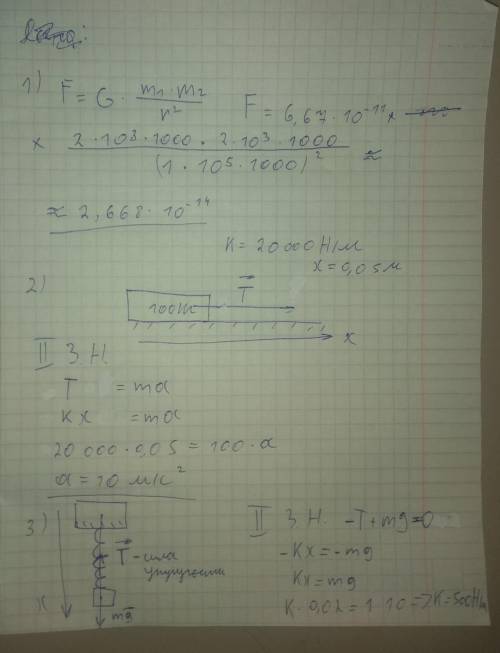 1) F = G · m₁ · m₂ / r²   F = 6,67 · 10⁻¹¹ ×
× 2 · 10³ · 1000 · 2 · 10³ · 1000 / (1 · 10⁵ · 1000)² ≈
≈ 2,668 · 10⁻¹⁴
K = 20000 Н/м
x = 0,05 м
2)
T
100кг
x
II З.Н.
T = ma
Kx = ma
20 000 · 0,05 = 100 · a
a = 10 м/с²
3)
T - сила
упругости
x
mg
II З.Н. -T + mg = 0
-Kx = -mg
Kx = mg
K · 0,02 = 1 · 10 => K = 500 Н/м